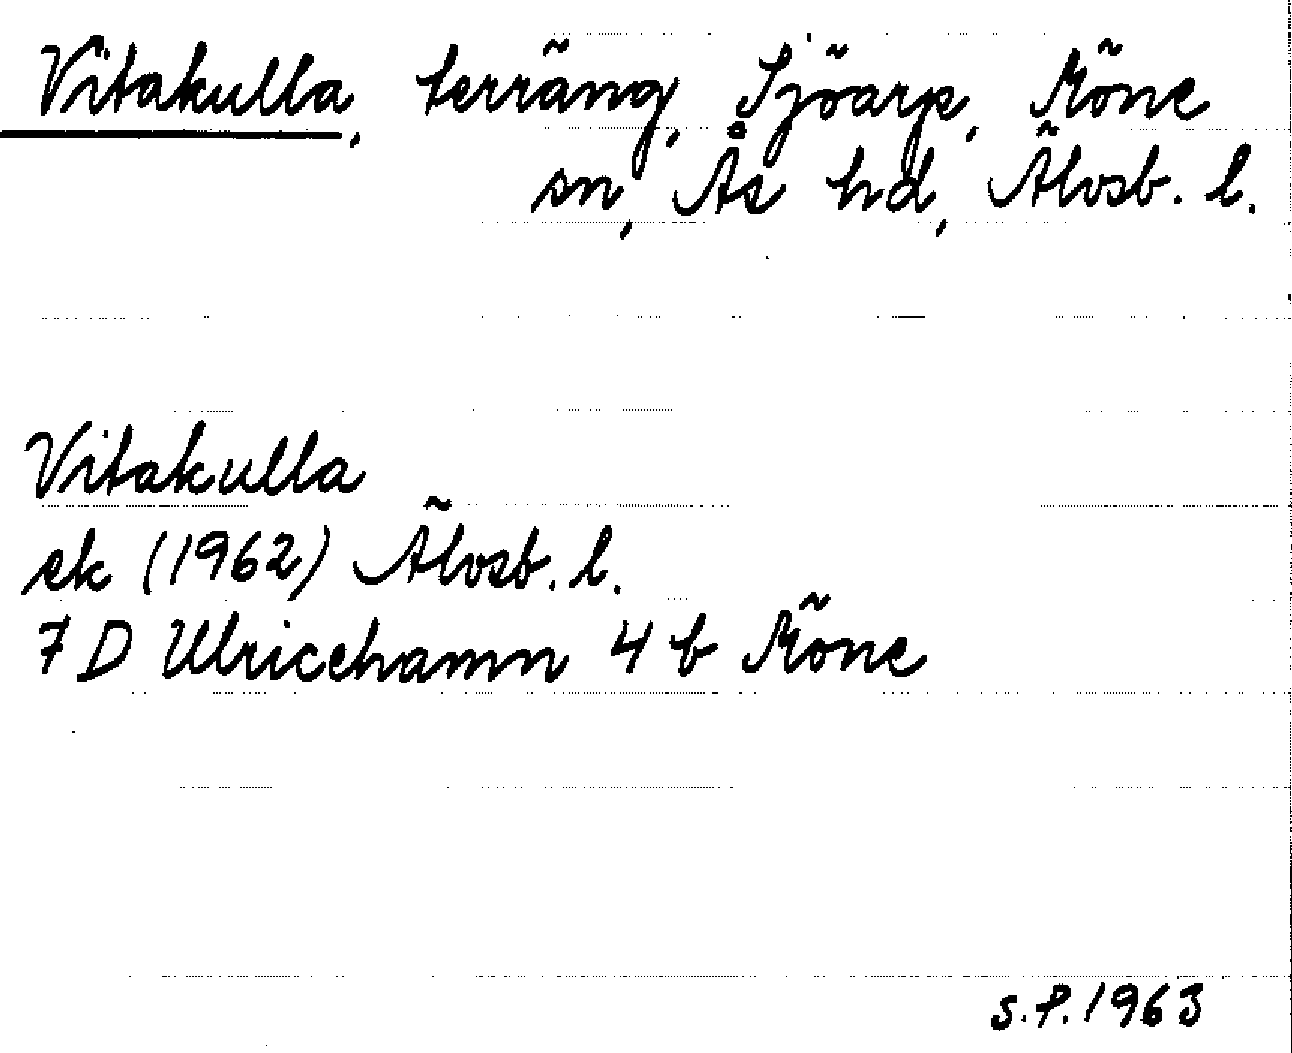 Vitakulla, terräng, Sjöarp, Möne
sn, Ås hd, Älvsb. l.
Vitakulla
ek (1962) Älvsb. l.
7 D Ulricehamn 4 b Möne
S.P. 1963